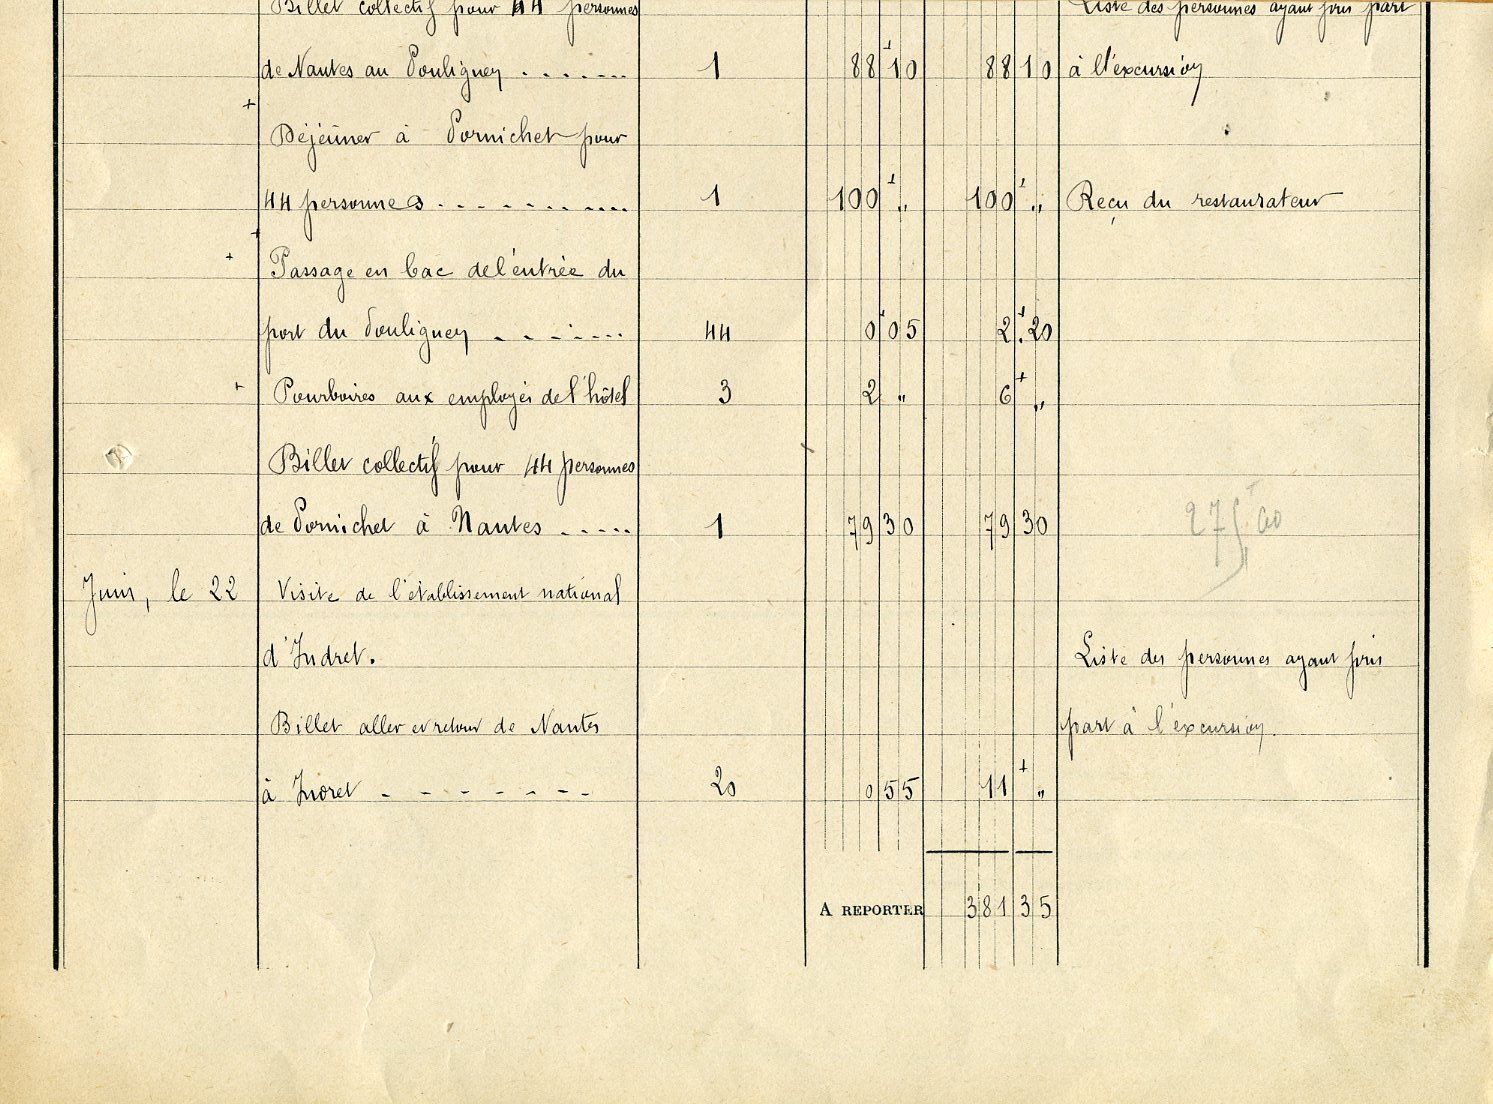 Billet collectif pour 44 personnes Liste des personnes ayant pris part
de Nantes au Pouliguen . . . . . . . 1 88 10 88 10 à l'excursion
Déjeûner à Pornichet pour
44 personnes . . . . . . . . . . . 1 100 " 100 " Reçu du restaurateur
Passage en bac de l'entrée du
port du Pouliguen . . . . . . . 44 0 05 2 20
Pourboires aux employés de l'hôtel 3 2 " 6 "
Billet collectif pour 44 personnes
de Pornichet à Nantes . . . . . 1 79 30 79 30
Juin, le 22 Visite de l'établissement national
d'Indret. Liste des personnes ayant pris
Billet aller et retour de Nantes part à l'excursion.
à Indret - - - - - - - 20 0 55 11 "
A REPORTER 381 35